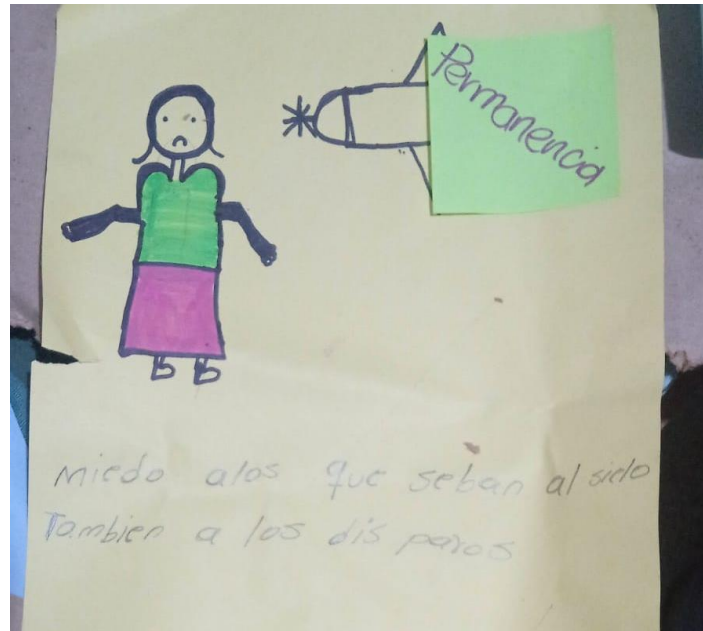 Permanencia
miedo alos que seban al sielo
Tambien a los dis paros